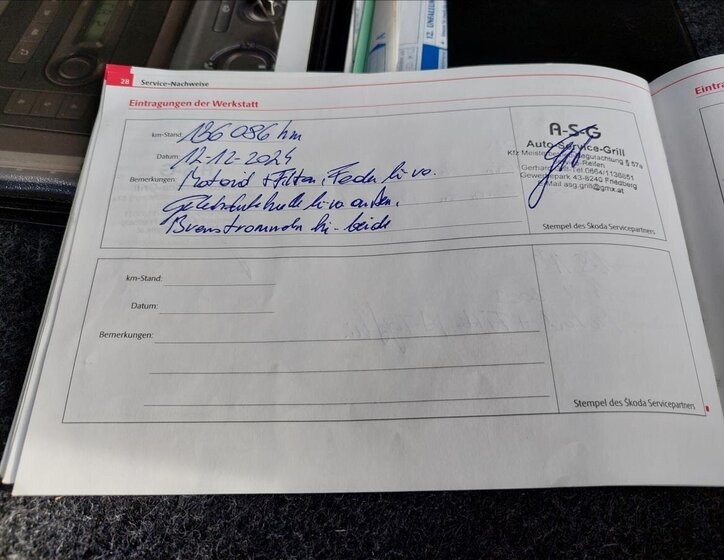 12. UNFALL
28 Service-Nachweise
Eintragungen der Werkstatt
km-Stand: 136 086 km
Datum: 12-12-2024
Bemerkungen: Motoröl + Filter, Feder li. vo.
Gelenkwelle li vo außen,
Bremstrommeln hi - beide
A-S-G
Auto-Service-Grill
Kfz Meisterbetrieb § 57a
Reifen
Gerhard Tel.0664/1136851
Gewerbepark 43-8240 Friedberg
Mail asg.grill@gmx.at
Stempel des Škoda Servicepartners
km-Stand:
Datum:
Bemerkungen:
Stempel des Škoda Servicepartners
Eintra